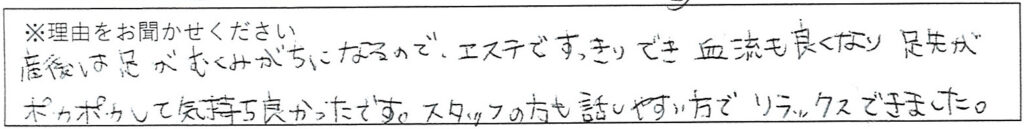 ※理由をお聞かせください
産後は足がむくみがちになるので、エステですっきりでき 血流も良くなり 足先が
ポカポカして気持ち良かったです。スタッフの方も話しやすい方でリラックスできました。